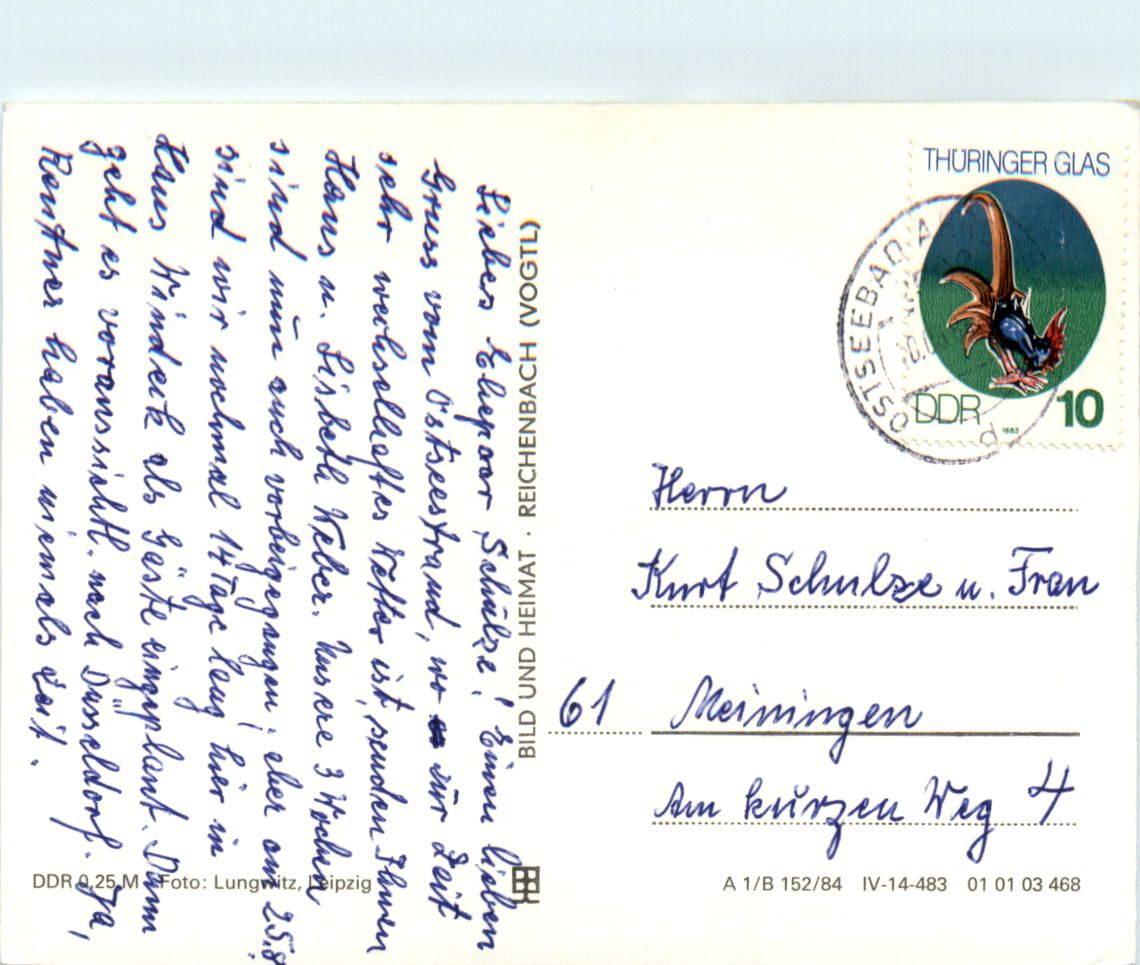 Liebes Ehepaar Schulze! Einen lieben
Gruss vom Ostseestrand, wo zur Zeit
sehr wechselhaftes Wetter ist, senden Ihnen
Hans u. Lisbeth Weber. Unsere 3 Wochen
sind nun auch vorbeigegangen, aber am 25.8.
sind wir nochmal 14 Tage lang hier in
Haus Windeck als Gäste eingeplant. Dann
geht es voraussichtl. nach Düsseldorf. Ja,
Rentner haben niemals Zeit.
BILD UND HEIMAT · REICHENBACH (VOGTL)
DDR 0,25 M Foto: Lungwitz, Leipzig
THÜRINGER GLAS
DDR 10
1983
OSTSEEBAD
Herrn
Kurt Schulze u. Frau
61 Meiningen
Am kurzen Weg 4
A 1/B 152/84 IV-14-483 01 01 03 468